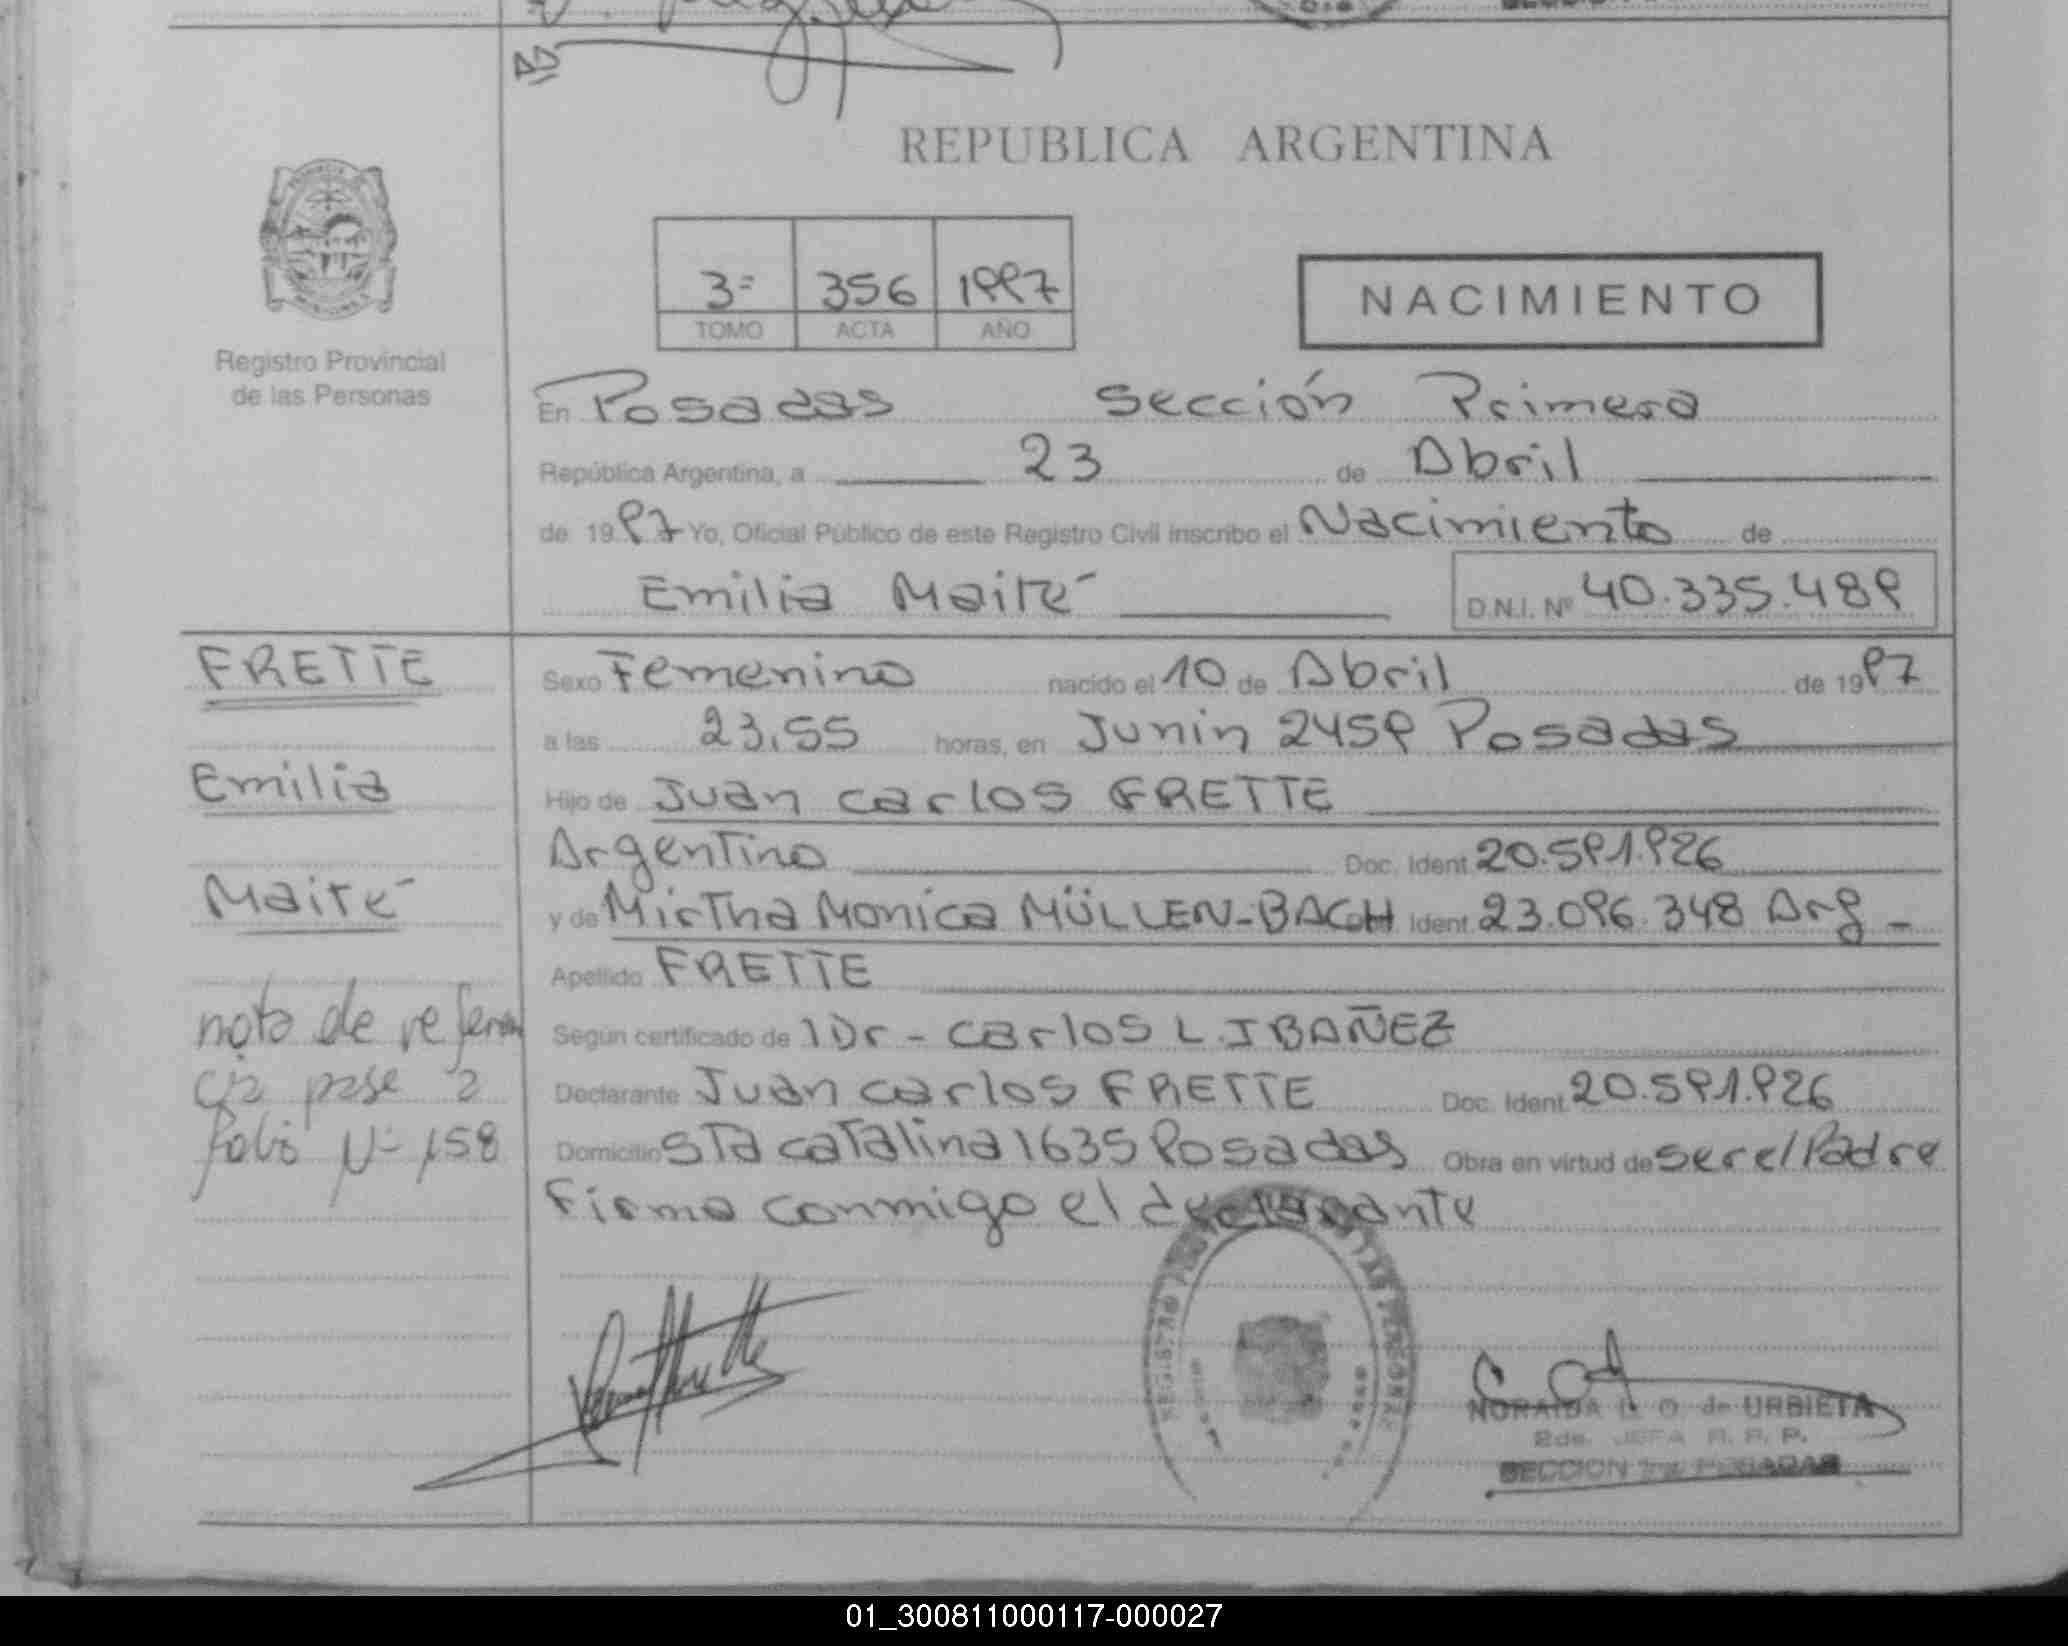 REPUBLICA ARGENTINA
3=
356
1997
TOMO
ACTA
AÑO
NACIMIENTO
Registro Provincial
de las Personas
En Posadas Sección Primera
República Argentina, a 23 de Abril
de 1997 Yo, Oficial Público de este Registro Civil inscribo el Nacimiento de
Emilia Maité
D.N.I. Nº 40.335.489
FRETTE
Emilia
Maité
nota de referen
cia pase a
folio Nº 158
Sexo Femenino nacido el 10 de Abril de 1997
a las 23,55 horas, en Junin 2459 Posadas
Hijo de Juan carlos FRETTE
Argentino Doc. Ident. 20.591.926
y de Mirtha Monica MÜLLEN-BACH Ident. 23.096.348 Arg -
Apellido FRETTE
Según certificado de l Dr - carlos L. IBAÑEZ
Declarante Juan carlos FRETTE Doc. Ident. 20.591.926
Domicilio Sta catalina 1635 Posadas Obra en virtud de ser el Padre
Firma conmigo el declarante
NORAIDA O. de URBIETA
2da. JEFA R. P. P.
SECCION 1ra. POSADAS
01_300811000117-000027